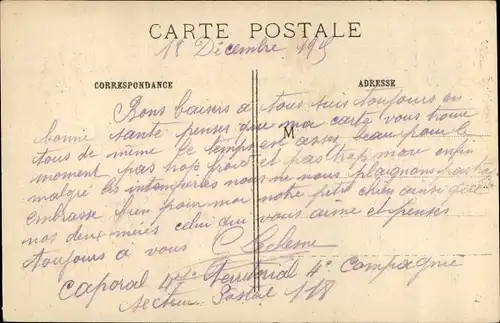 CARTE POSTALE
18 Décembre 1915
CORRESPONDANCE
ADRESSE
Bons baisers à tous suis toujours en
bonne santé penses que ma carte vous trouve
M
tous de même le temps est assez beau pour le
moment pas trop froid et pas trop mou enfin
malgré les intempéries nous ne nous plaignons pas trop
embrasse bien pour moi notre petit chien ainsi que
nos deux mères celui qui vous aime et penses
toujours à vous
Caporal Territorial 4e Compagnie
Secteur Postal 118